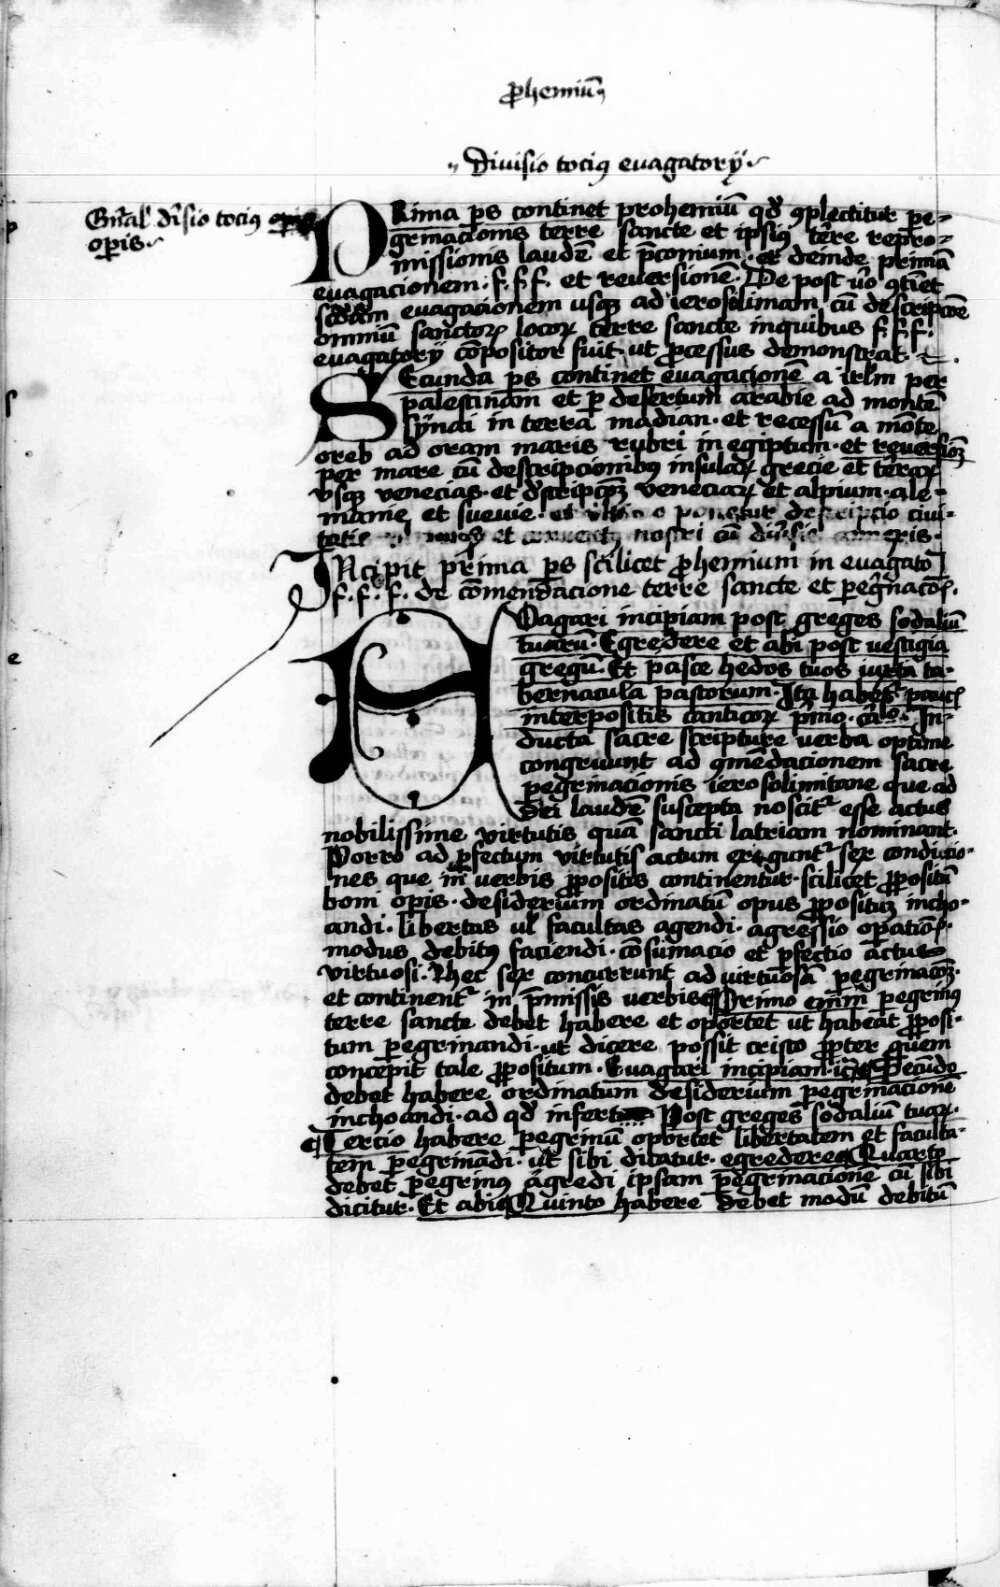 ꝓhemiū
Divisio tociꝰ evagatorÿ
Gn̄al' diuisio tociꝰ
oꝑis
PRima ps continet prohemiū qd' ꝯplectitur pe-
grinacionis terre sancte et ipsiꝰ t're repro-
missionis laudē et p̄conium. et deinde primā
evagacionem. f. f. f. et reversionē. De post v'o ꝯtinet
scd'am evagacionem usqꝫ ad ierosolimam cū descripcōe
omniū sanctoꝝ locoꝝ terre sancte inquibus f. f. f.
evagatorÿ cōpositor fuit. ut ꝓcessus demonstrat.
SEcunda ps continet evagacionē a ir'lm per
palestinam et ꝑ desertum arabie ad montē
sÿnai in terra madian. et recessū a mōte
oreb ad oram maris rubri in egiptum. et reversionē
per mare cū descripcionibꝰ insulaꝝ grecie et t'raꝝ
vsqꝫ venecias. et d'scripcōꝫ veneciaꝝ et alpium. ale-
manie et suevie. descripcio civi-
et nostri cū
INcipit prima ps scilicet ꝓhemium in evagato
f. f. f. de cōmendacione terre sancte et peg'nacōe.
Vagari incipiam post greges sodaliū
tuorū. Egredere et abi post vestigia
gregū. Et pasce hedos tuos iuxta ta-
bernacula pastorum. Ita habet' paucꝭ
interpositis canticoꝝ p'mo. In-
ducta sacre scripture verba optime
congruunt ad ꝯmēdacionem sacre
ꝑegrinacionis ierosolimitane que ad
dei laudē suscepta noscit' esse actus
nobilissime virtutis quā sancti latriam nominant.
Porro ad ꝑfectum virtutis actum exigunt' sex condicio-
nes que in verbis ꝓpositis continentur. scilicet ꝓpositū
boni oꝑis. desiderium ordinatū opus ꝓpositū incho-
andi. libertas ul' facultas agendi. agressio oꝑationꝭ.
modus debitꝰ faciendi. cōsumacio et ꝑfectio actus
virtuosi. Nec sex concurrunt ad virtuosā ꝑegrinacōꝫ.
et continent' in p̄missis verbis. Primo enim peg'nꝰ
terre sancte debet habere et oportet ut habeat ꝓposi-
tum ꝑegrinandi. ut dicere possit cristo ꝓpter quem
concepit tale ꝓpositum. Evagari incipiam. Secūdo
debet habere ordinatum desiderium ꝑegrinacionē
inchoandi. ad qd' infert Post greges sodaliū tuoꝝ.
¶ Tercio habere ꝑegrinū oportet libertatem et faculta-
tem ꝑegrinādi. ut sibi dicatur. egredere Quarto
debet ꝑegrinꝰ agredi ipsam ꝑegrinacionē cū sibi
dicitur. Et abi Quinto habere debet modū debitū